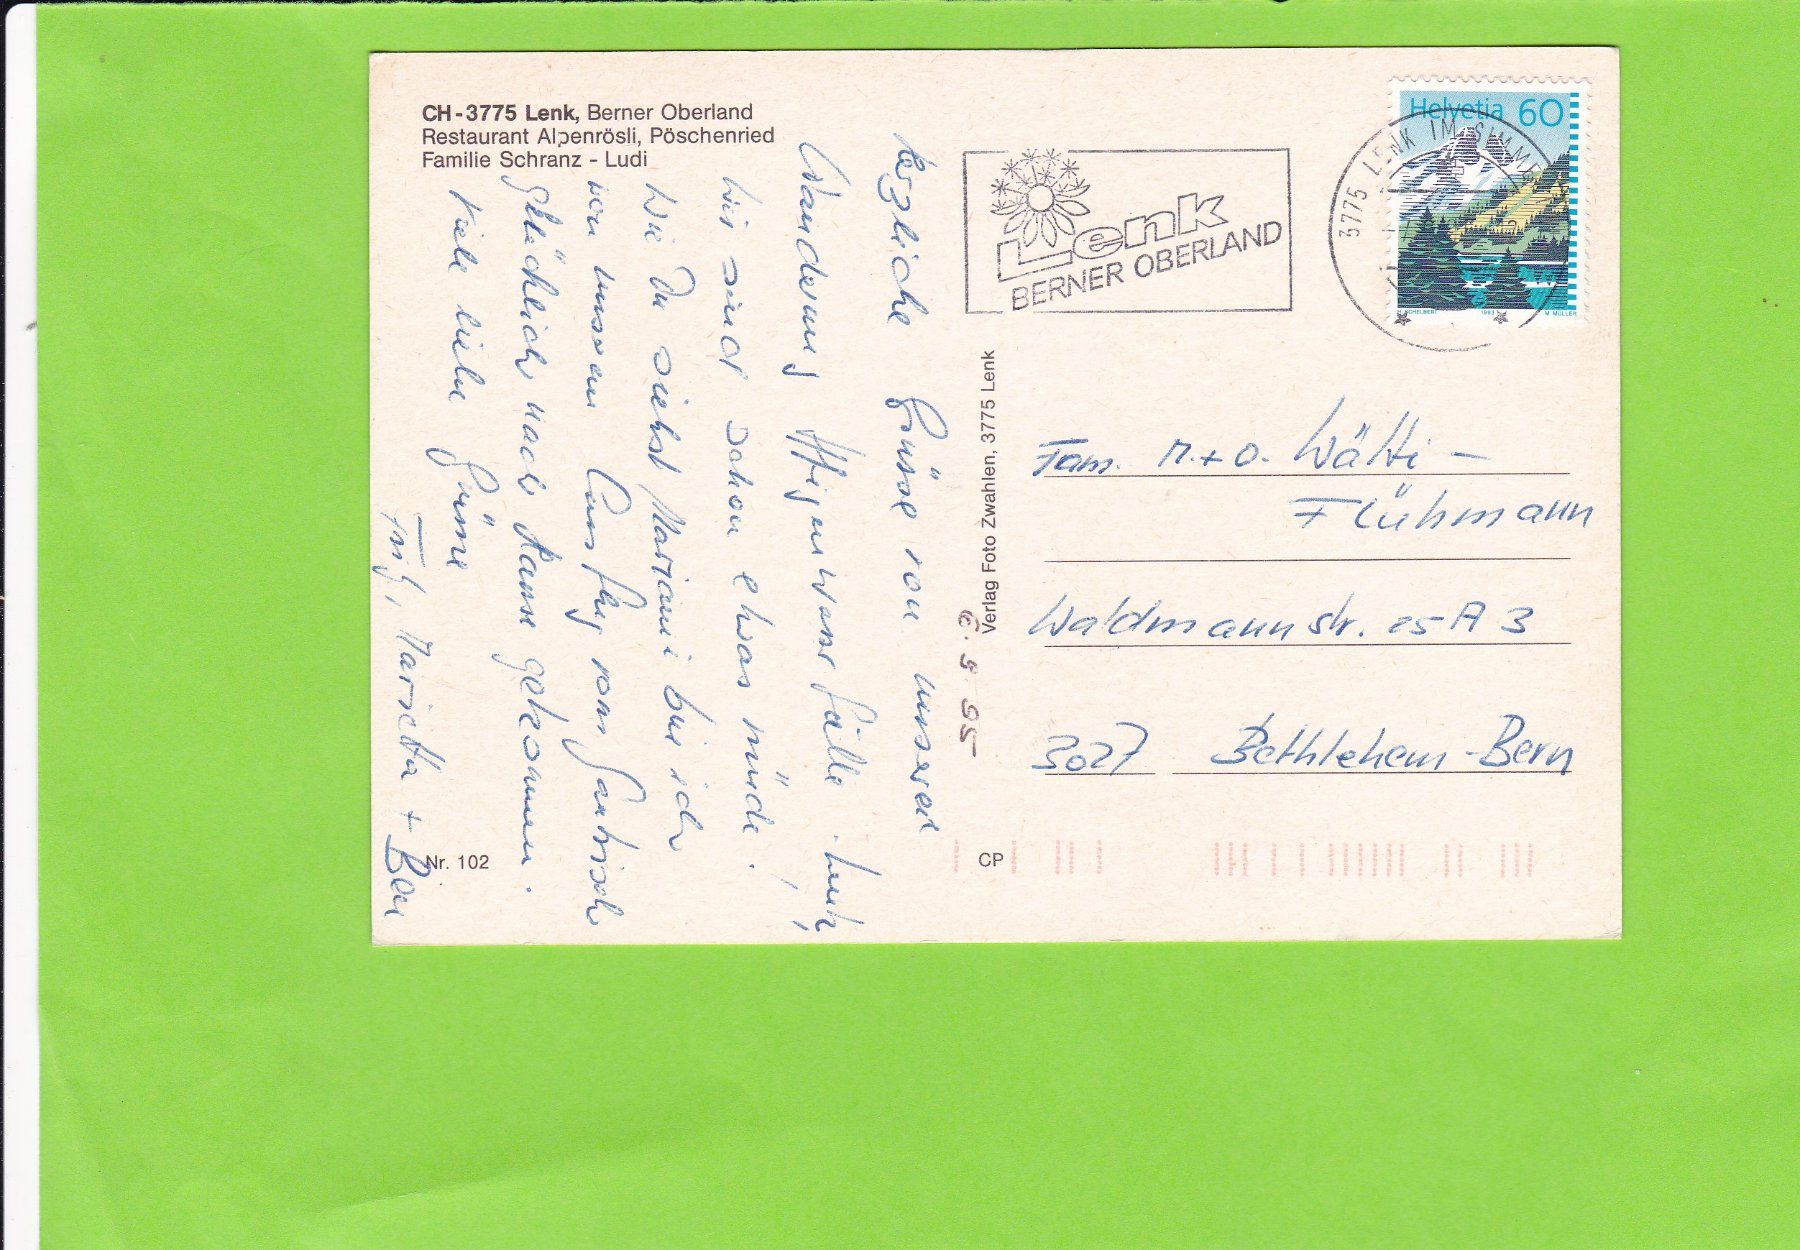 CH-3775 Lenk, Berner Oberland
Restaurant Alpenrösli, Pöschenried
Familie Schranz - Ludi
Herzliche Grüsse von unserer
Wanderung Iffigenwasserfälle - Lenk,
wir sind schon etwas müde!
Wie Du siehst Mariani bin ich
von unserem Ausflug vom Gantrisch
glücklich nach Hause gekommen.
Viele liebe Grüsse
Marietta +
Nr. 102
CP
Verlag Foto Zwahlen, 3775 Lenk
6.9.95
Lenk
BERNER OBERLAND
3775 LENK IM SIMME
Helvetia 60
H. SCHELBERT 1993 M. MÜLLER
Fam. M.+O. Wälti -
Flühmann
Waldmannstr. 25 A 3
3027 Bethlehem-Bern